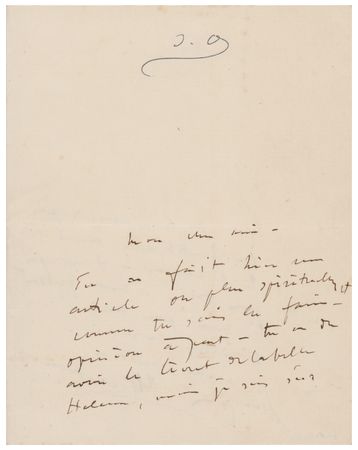 J. O
Mon cher ami -
Tu as fait hier un
article on plus spirituel, et
comme tu sais les faire -
opinion à part - tu as du
avoir le livret de la belle
Hélène, mais je suis sûr